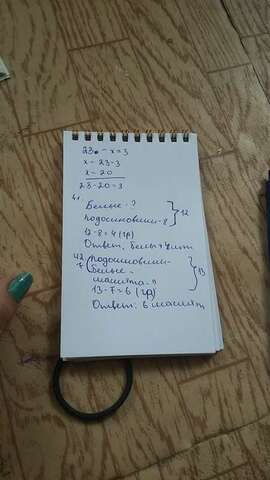 23 - x = 3
x - 23-3
x - 20
23-20=3
Белые - ?
подосиновики - 8
12
12-8=4 (гр)
Ответ, белых 4 шт
подосиновики -
белые -
маслята - ?
13
13-7=6 (гр)
Ответ: 6 маслят